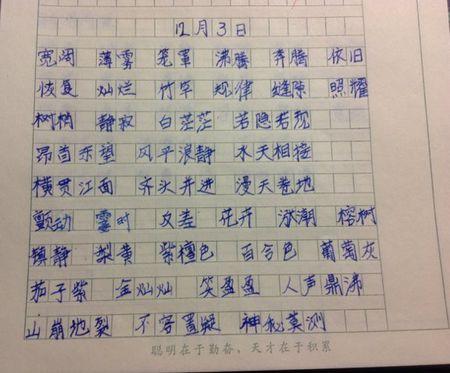 12月3日
宽阔 薄雾 笼罩 沸腾 奔腾 依旧
恢复 灿烂 竹竿 规律 缝隙 照耀
树梢 静寂 白茫茫 若隐若现
昂首东望 风平浪静 水天相接
横贯江面 齐头并进 漫天卷地
颤动 霎时 交差 花卉 冰潮 榕树
镇静 梨黄 紫檀色 百合色 葡萄灰
茄子紫 金灿灿 笑盈盈 人声鼎沸
山崩地裂 不容置疑 神秘莫测
聪明在于勤奋、天才在于积累